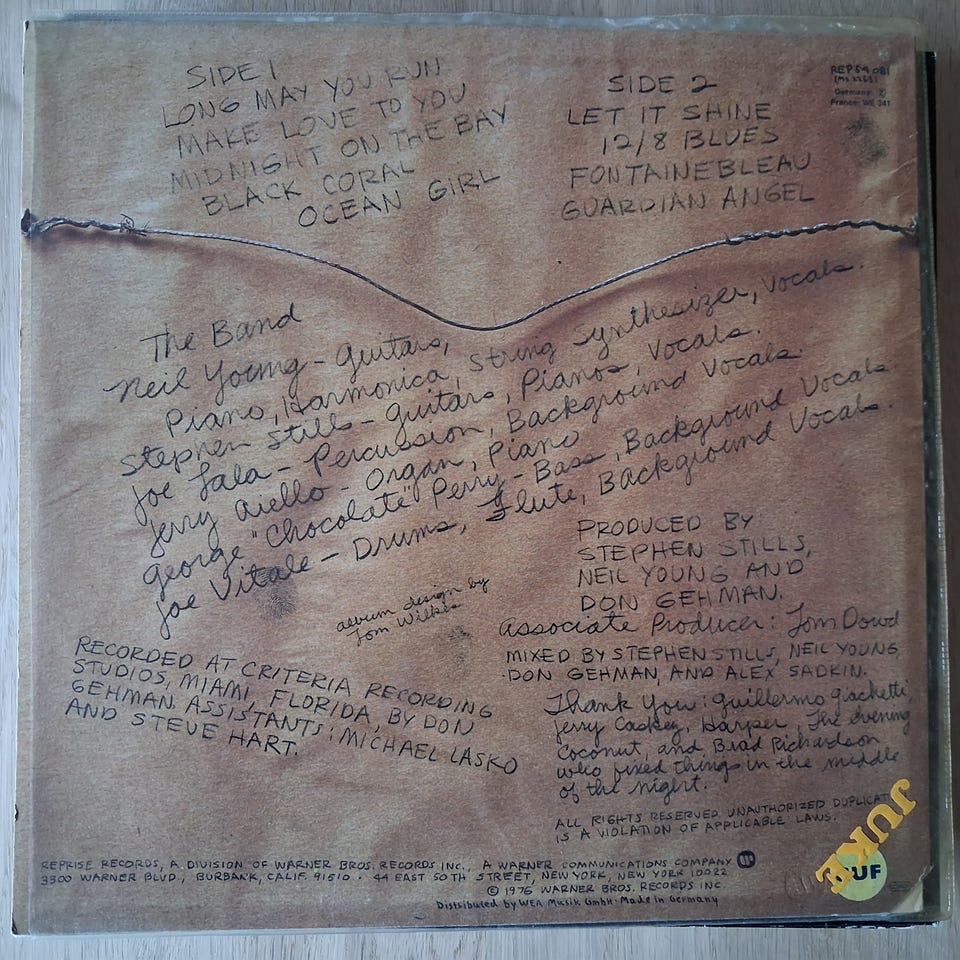 SIDE 1
LONG MAY YOU RUN
MAKE LOVE TO YOU
MIDNIGHT ON THE BAY
BLACK CORAL
OCEAN GIRL
SIDE 2
LET IT SHINE
12/8 BLUES
FONTAINEBLEAU
GUARDIAN ANGEL
REP 54 081
Germany: Z
France: WE 341
The Band
Neil Young - Guitars,
Piano, Harmonica, String Synthesizer, Vocals.
Stephen Stills - Guitars, Pianos, Vocals.
Joe Lala - Percussion, Background Vocals.
Jerry Aiello - Organ, Piano
George "Chocolate" Perry - Bass, Background Vocals.
Joe Vitale - Drums, Flute, Background Vocals.
album design by
Tom Wilkes
PRODUCED BY
STEPHEN STILLS,
NEIL YOUNG AND
DON GEHMAN.
Associate Producer: Tom Dowd
MIXED BY STEPHEN STILLS, NEIL YOUNG,
DON GEHMAN, AND ALEX SADKIN.
Thank You: Guillermo Giachetti,
Jerry Caskey, Harper, The evening
Coconut, and Brad Richardson
who fixed things in the middle
of the night.
RECORDED AT CRITERIA RECORDING
STUDIOS, MIAMI, FLORIDA, BY DON
GEHMAN. ASSISTANTS: MICHAEL LASKO
AND STEVE HART.
ALL RIGHTS RESERVED. UNAUTHORIZED DUPLICAT
IS A VIOLATION OF APPLICABLE LAWS.
REPRISE RECORDS, A DIVISION OF WARNER BROS. RECORDS INC., A WARNER COMMUNICATIONS COMPANY
3300 WARNER BLVD., BURBANK, CALIF. 91510 · 44 EAST 50TH STREET, NEW YORK, NEW YORK 10022
© 1976 WARNER BROS. RECORDS INC.
Distributed by WEA Musik GmbH · Made in Germany
JUKE
UF